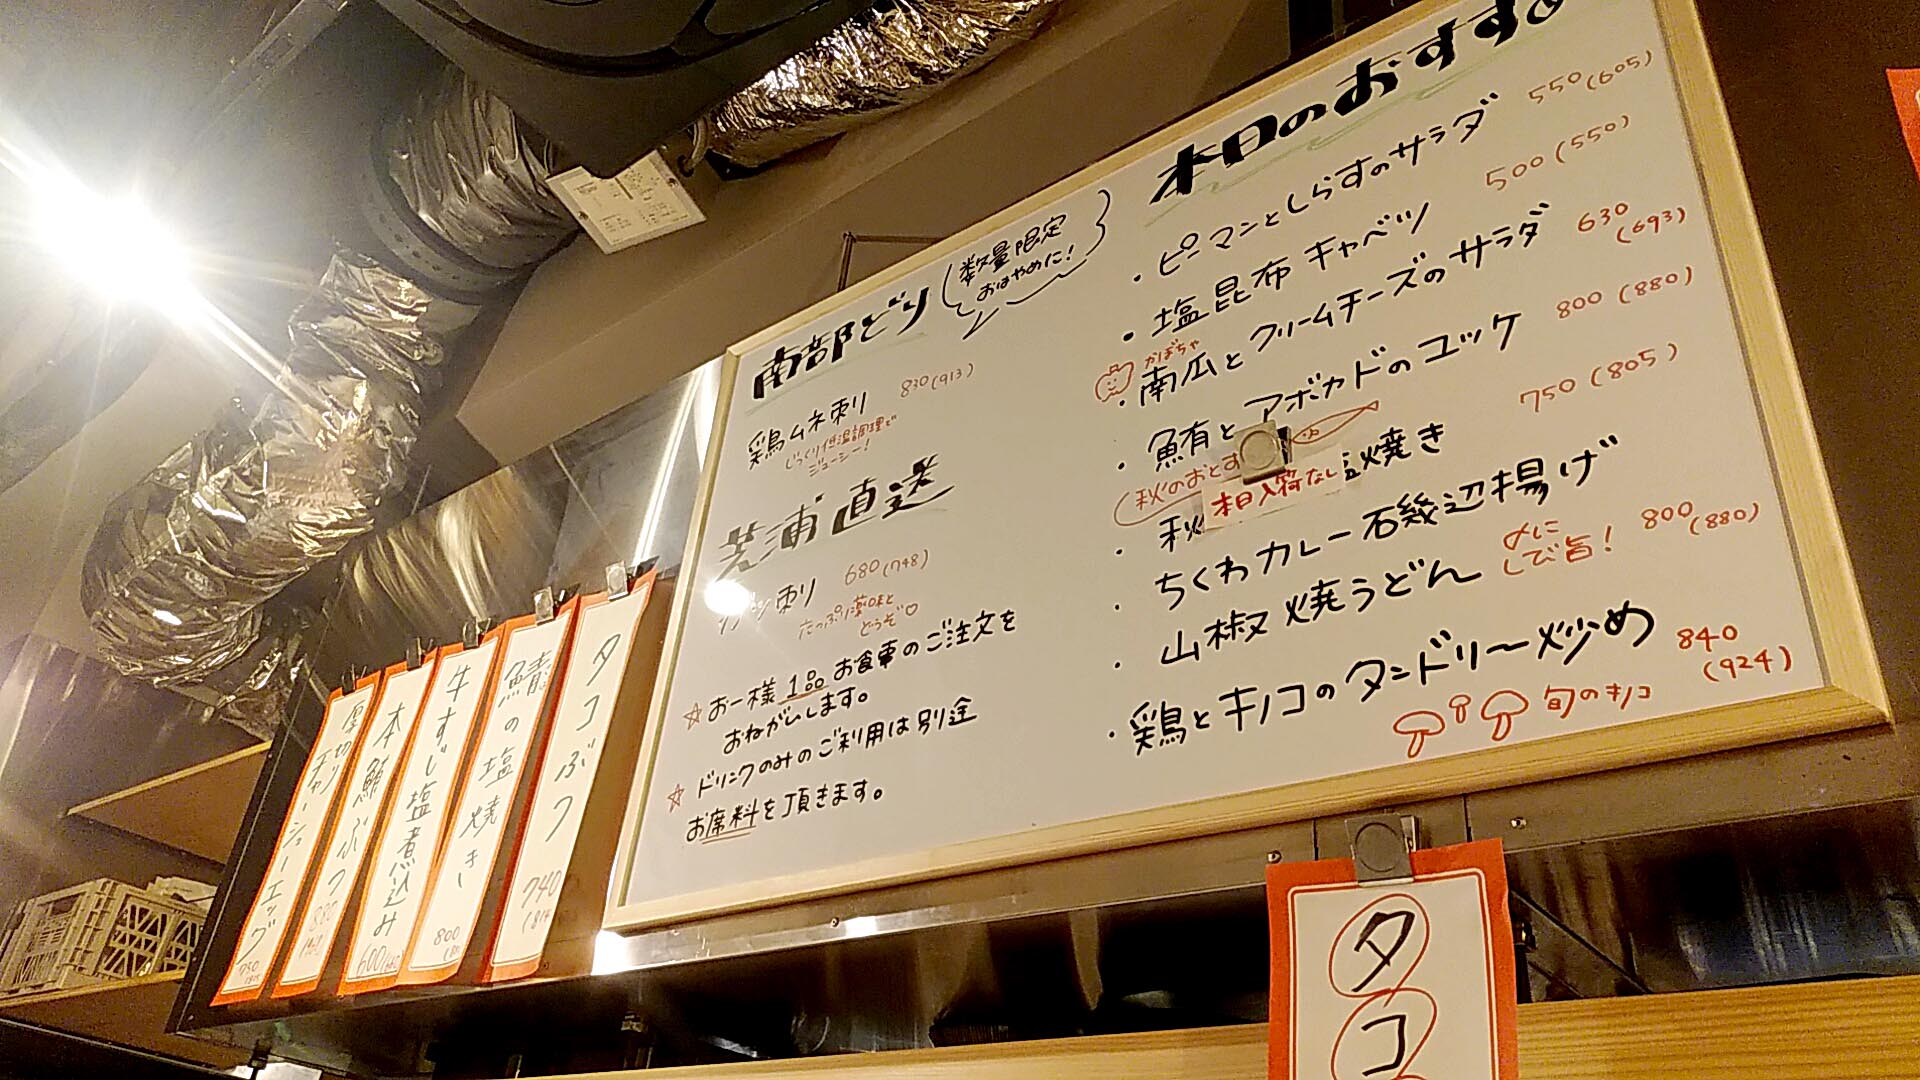 南部どり
数量限定
おはやめに!
鶏ムネ刺り 830(913)
じっくり低温調理で
ジューシー!
芝浦直送
刺り 680(748)
たっぷり薬味と
どうぞ♡
☆お一様1品お食事のご注文を
おねがいします。
☆ドリンクのみのご利用は別途
お席料を頂きます。
本日のおすすめ
・ピーマンとしらすのサラダ 550(605)
・塩昆布キャベツ 500(550)
かぼちゃ
・南瓜とクリームチーズのサラダ 630
(693)
・鮪とアボカドのユッケ 800(880)
秋のおとず
・秋 本日入荷なし 焼き 750(805)
・ちくわカレー石幾辺揚げ
・山椒焼うどん 〆に
しび旨! 800
(880)
・鶏とキノコのタンドリー炒め 840
(924)
旬のキノコ
厚切り
チャーシューエッグ
750
本鮪ぶつ
880
牛すじ塩煮込み
600
鯖の塩焼き
800
(880
タコぶつ
740
(814
タコ